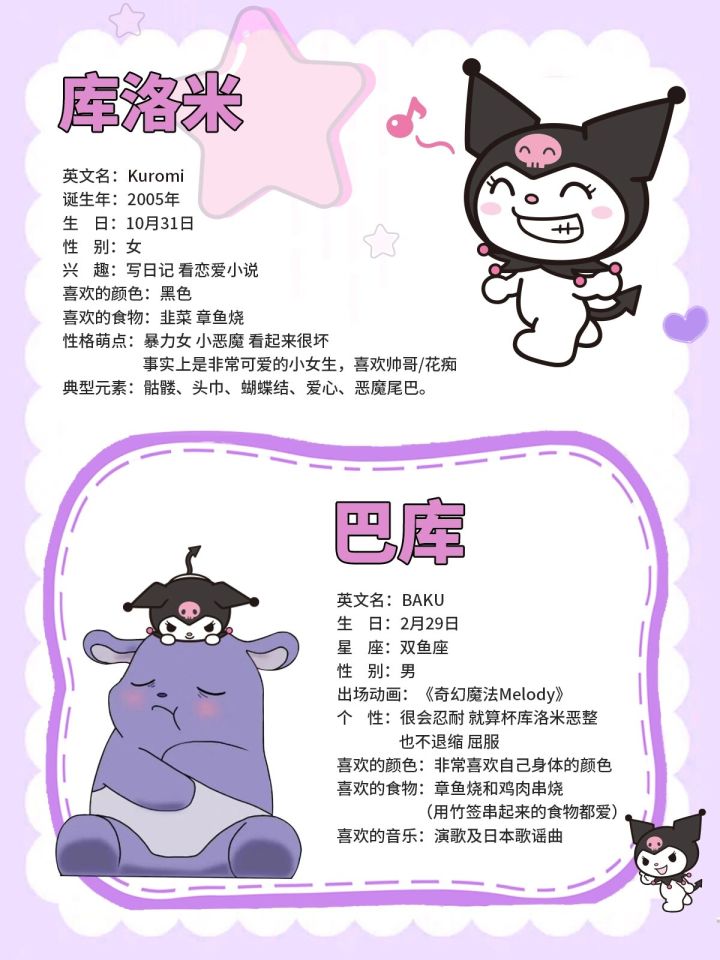 库洛米
英文名：Kuromi
诞生年：2005年
生 日：10月31日
性 别：女
兴 趣：写日记 看恋爱小说
喜欢的颜色：黑色
喜欢的食物：韭菜 章鱼烧
性格萌点：暴力女 小恶魔 看起来很坏
事实上是非常可爱的小女生，喜欢帅哥/花痴
典型元素：骷髅、头巾、蝴蝶结、爱心、恶魔尾巴。
巴库
英文名：BAKU
生 日：2月29日
星 座：双鱼座
性 别：男
出场动画：《奇幻魔法Melody》
个 性：很会忍耐 就算杯库洛米恶整
也不退缩 屈服
喜欢的颜色：非常喜欢自己身体的颜色
喜欢的食物：章鱼烧和鸡肉串烧
（用竹签串起来的食物都爱）
喜欢的音乐：演歌及日本歌谣曲